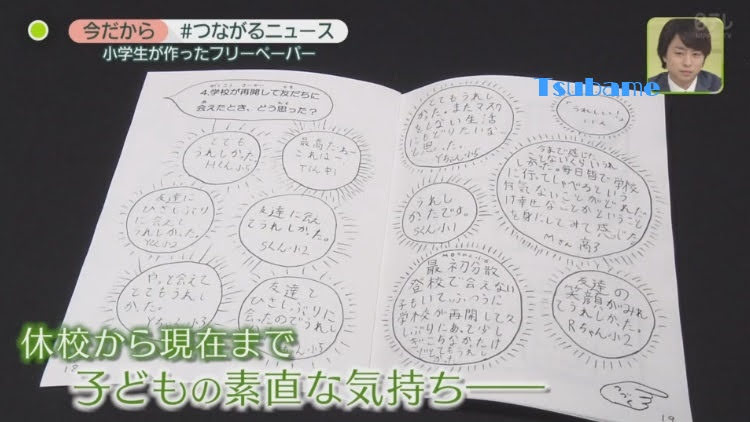 今だから
#つながるニュース
小学生が作ったフリーペーパー
日テレ
Tsubame
4.学校が再開して友だちに
会えたとき、どう思った?
とても
うれしかった。
Hくん小5
最高だねー
これはー
友達に
ひさしぶり
に会えて
うれしかった。
友達に会え
てうれしかった。
Sくん小2
やっと会えて
とてもうれし
かった。
友達と
ひさしぶりに
会ったのでうれし
とてもうれし
かった。またマスク
をしない生活
にもどりたいな
と思った。
うれし
かったです。
Sくん小1
今まで感じた
毎日皆で学校
に行ってしゃべるという
何気ないことがどれだ
け幸せなことかということ
を身にしみて感じた
Mさん 高3
最初分散
登校で会えない
子もいて、ふつうに
学校が再開してひ
しぶりにあって少し
ぎこちなかったけ
どとてもうれし
友達の
笑顔がみれ
てうれしかった。
Rちゃん小2
つづく
18
19
休校から現在まで
子どもの素直な気持ち――